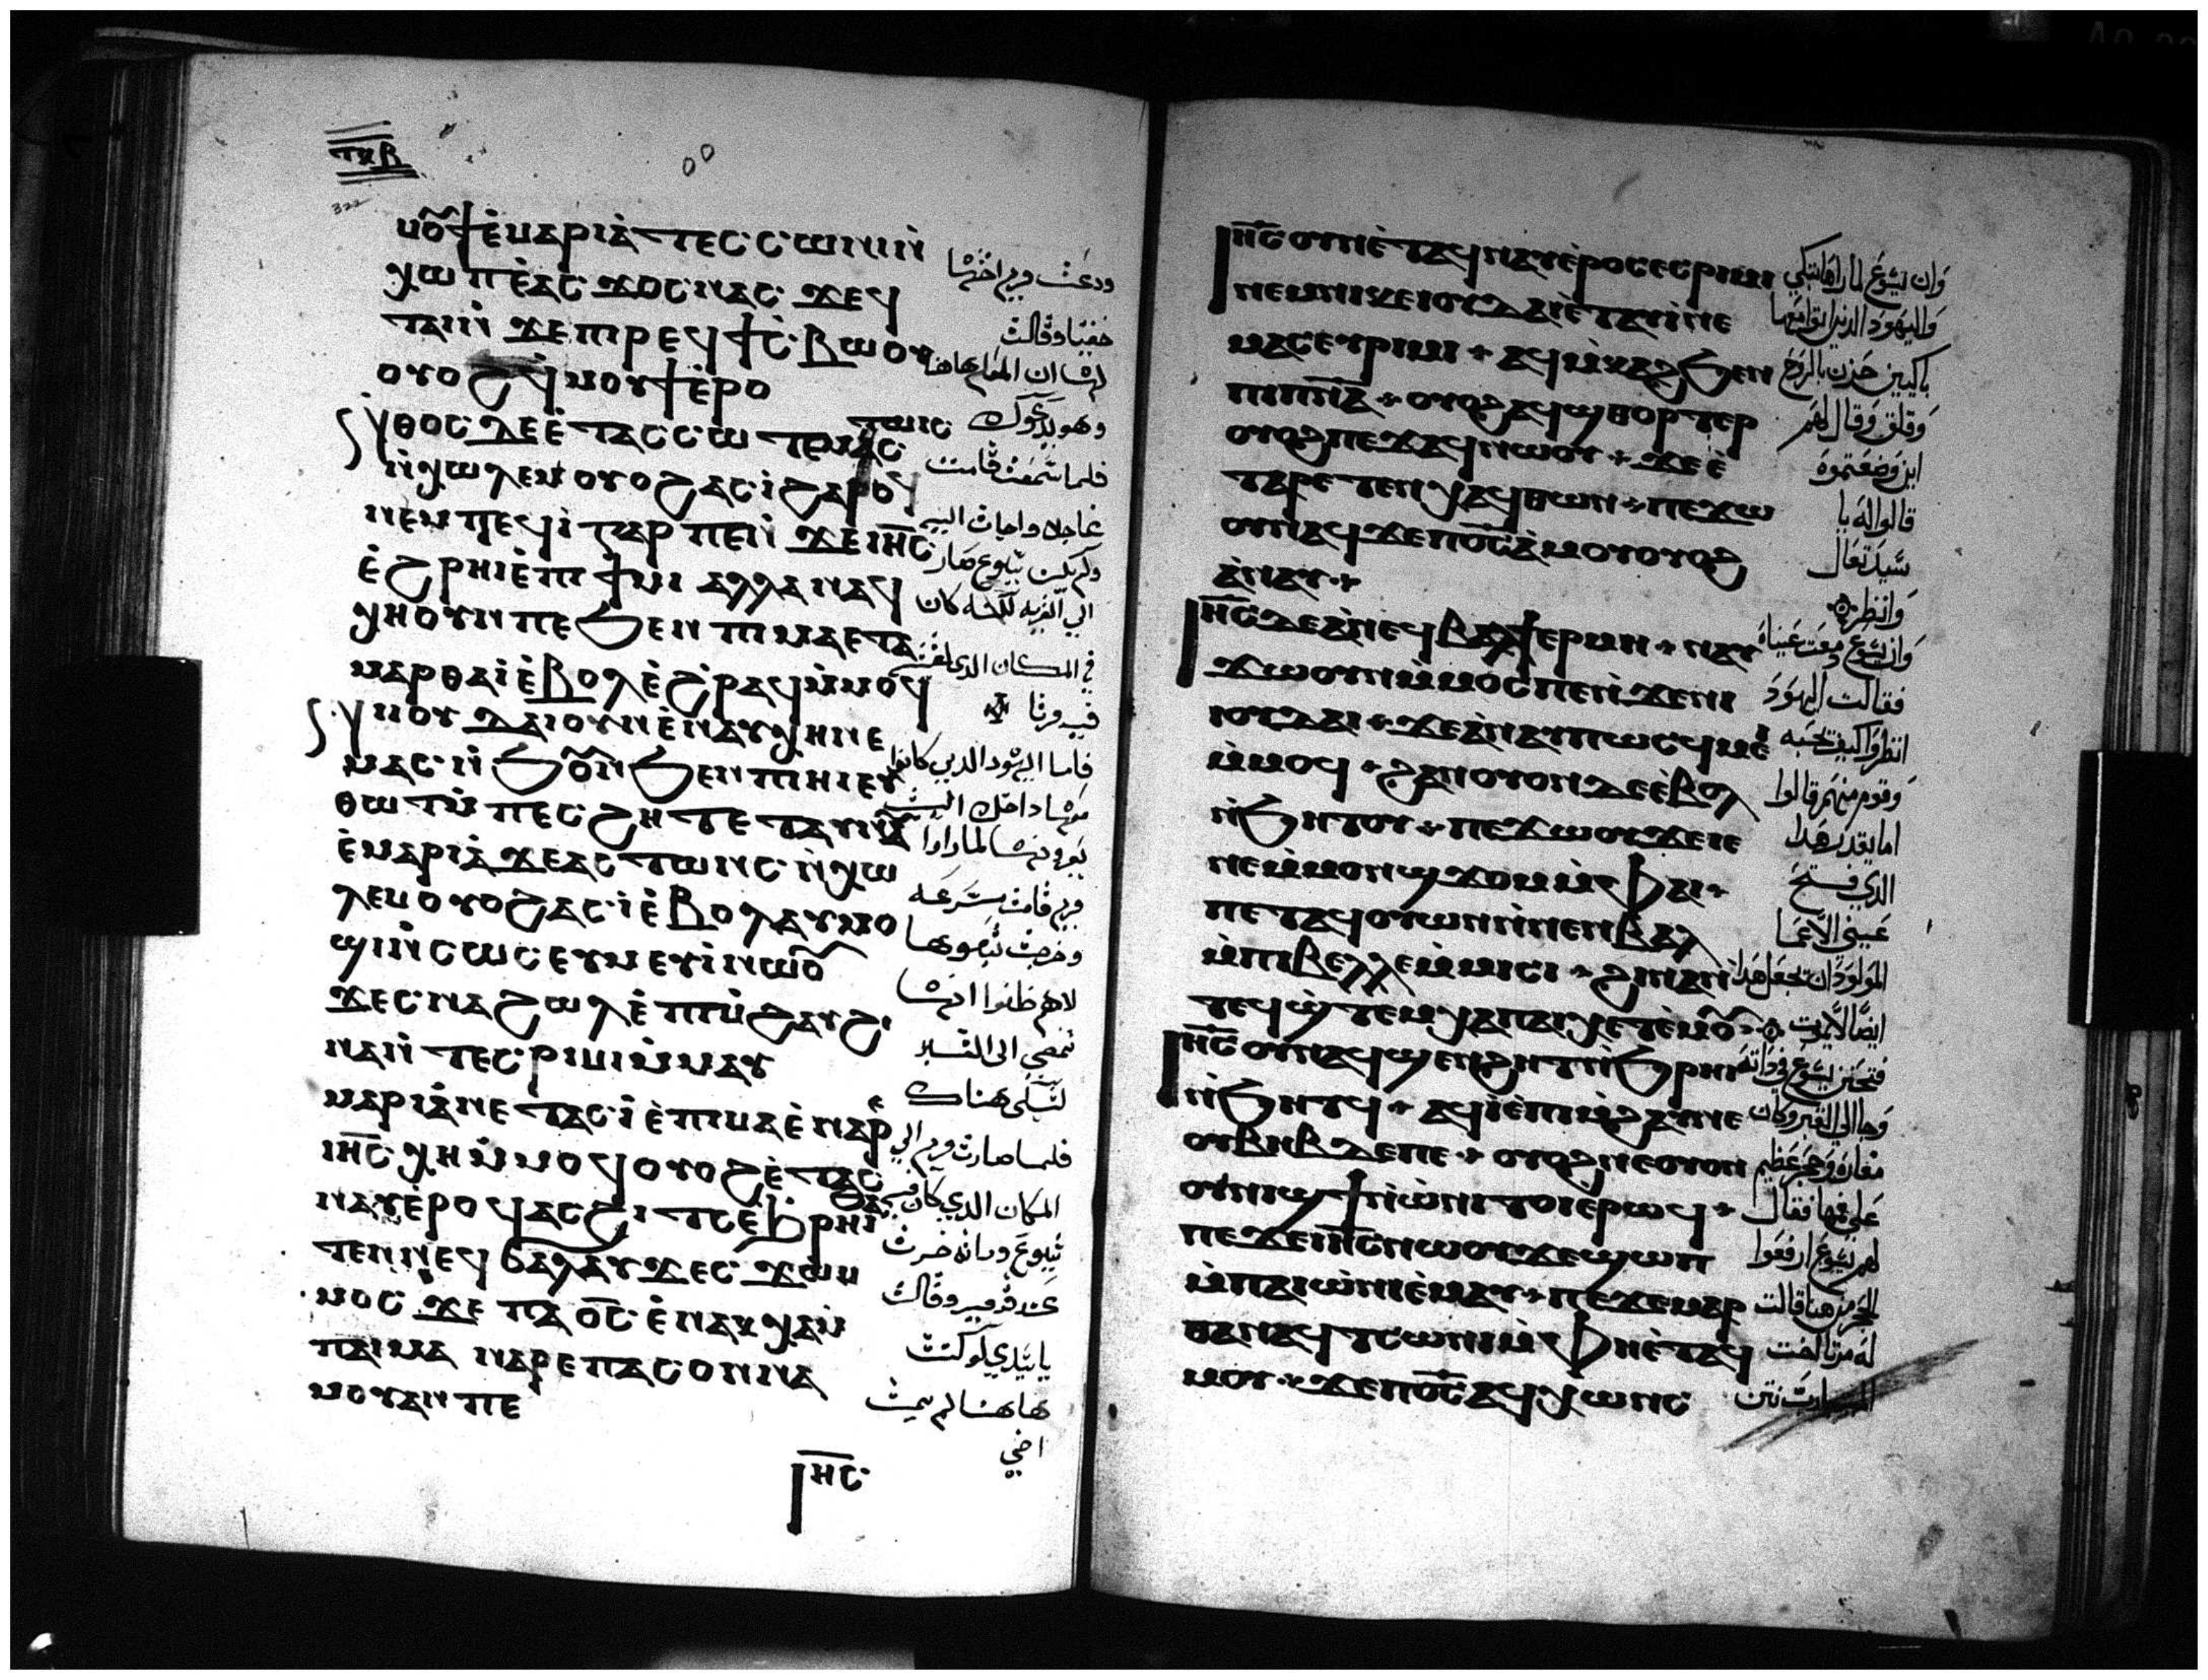 ⲧⲕⲃ
322
ⲙⲟⲩϯⲉ̀ⲙⲁⲣⲓⲁ̀ⲧⲉⲥⲥⲱⲛⲓⲛ̀
ⲭⲱⲡⲉ̀ⲁⲥϫⲟⲥⲛⲁⲥϫⲉϥ
ⲧⲁⲓⲛ̀ϫⲉⲡⲓⲣⲉϥϯⲥ̀ⲃⲱⲟⲩ
ⲟⲩⲟϩϥ̀ⲙⲟⲩϯⲉ̀ⲣⲟ
ⲛ̀ⲑⲟⲥⲇⲉⲉ̀ⲧⲁⲥⲥⲱⲧⲉⲙⲁⲥ
ⲧⲱⲛⲥ
ⲛ̀ⲭⲱⲗⲉⲙⲟⲩⲟϩⲁⲥⲓ̀ϩⲁⲣⲟϥ
ⲛⲉⲙⲡⲉϥⲓ̀ⲅⲁⲣⲡⲉⲛ̀ϫⲉⲓⲏ̅ⲥ̅
ⲉ̀ϩⲣⲏⲓⲉ̀ⲡⲓϯⲙⲓⲁⲗⲗⲁⲛⲁϥ
ⲭⲏⲟⲩⲛⲡⲉϧⲉⲛⲡⲓⲙⲁⲉⲧⲁ
ⲙⲁⲣⲑⲁⲓ̀ⲉ̀ⲃⲟⲗⲉ̀ϩⲣⲁϥⲙ̀ⲙⲟϥ
ⲛⲓⲟⲩⲇⲁⲓⲟⲩⲛⲉ̀ⲛⲁⲩⲭⲏⲛⲉ
ⲙⲁⲥⲛ̀ϧⲟⲩⲛϧⲉⲛⲡⲓⲏⲓⲉⲩ
ⲑⲱⲧⲙ̀ⲡⲉⲥϩⲏⲧⲉⲧⲁⲩⲛⲁⲩ
ⲉ̀ⲙⲁⲣⲓⲁ̀ϫⲉⲁⲥⲧⲱⲛⲥⲛ̀ⲭⲱ
ⲗⲉⲙⲟⲩⲟϩⲁⲥⲓ̀ⲉ̀ⲃⲟⲗⲁⲩⲙⲟ
ϣⲓⲛ̀ⲥⲱⲥⲉⲩⲙⲉⲩⲓ̀ⲛⲱⲟⲩ
ϫⲉⲥⲛⲁϩⲱⲗⲉ̀ⲡⲓⲙ̀ϩⲁⲩϩⲓ
ⲛⲁⲛ̀ⲧⲉⲥⲣⲓⲙⲓⲙ̀ⲙⲁⲩ
ⲙⲁⲣⲓⲁ̀ⲛⲉⲧⲁⲥⲓ̀ⲉ̀ⲡⲓⲙⲁⲉ̀ⲛⲁⲣⲉ
ⲓⲏ̅ⲥ̅ⲭⲏⲙ̀ⲙⲟϥⲟⲩⲟϩⲉ̀ⲧⲁⲥ
ⲛⲁⲩⲉ̀ⲣⲟϥⲁⲥϩⲓⲧⲥⲉ̀ϧⲣⲏⲓϧⲁ
ⲧⲉⲛⲛⲉϥϭⲁⲗⲁⲩϫⲉⲥϫⲱⲙ
ⲙⲟⲥϫⲉⲡⲁⲟ̅ⲥ̅ⲉ̀ⲛⲁⲕⲭⲁⲙ̀
ⲡⲁⲓⲙⲁⲛⲁⲣⲉⲡⲁⲥⲟⲛⲛⲁ
ⲙⲟⲩⲁⲛⲡⲉ
ⲓⲏ̅ⲥ̅
ودعت مريم اختها
خفيا وقالت
لها ان المعلم هاهنا
وهو يدعوك
فلما سمعت قامت
عاجله وجات اليه
ولم يكن يسوع صار
الي القريه لكنه كان
في المكان الدي لقته
فيه مرتا
فاما اليهود الدين كانوا
معها داخل البيت
يعزونها لما راوا
مريم قامت بسرعه
وخرجت تبعوها
لانهم ظنوا انها
تمضي الى القبر
لتبكي هناك
فلما صارت مريم الي
المكان الدي كان فيه
يسوع وراته خرت
عند قدميه وقالت
يا سيدي لو كنت
هاهنا لم يمت
اخي
ⲓⲏ̅ⲥ̅ⲟⲩⲛⲉ̀ⲧⲁϥⲛⲁⲩⲉ̀ⲣⲟⲥⲉⲥⲣⲓⲙⲓ
ⲛⲉⲙⲛⲓⲕⲉⲓⲟⲩⲇⲁⲓⲉ̀ⲧⲁⲩⲓ̀ⲛⲉ
ⲙⲁⲥⲉⲩⲣⲓⲙⲓ⁜ⲁϥⲙ̀ⲕⲁϩϧⲉⲛ
ⲡⲓⲡⲛ̅ⲁ̅⁜ⲟⲩⲟϩⲁϥϣⲑⲟⲣⲧⲉⲣ
ⲟⲩⲟϩⲡⲉϫⲁϥⲛⲱⲟⲩ⁜ϫⲉⲉ̀
ⲧⲁⲣⲉⲧⲉⲛⲭⲁϥⲑⲱⲛ⁜ⲡⲉϫⲱ
ⲟⲩⲛⲁϥϫⲉⲡⲟ̅ⲥ̅ⲁ̀ⲙⲟⲩⲟⲩⲟϩ
ⲁ̀ⲛⲁⲩ⁜
ⲓⲏ̅ⲥ̅ⲇⲉⲁ̀ⲛⲉϥⲃⲁⲗϯⲉⲣⲙⲏ⁜ⲛⲁⲩ
ϫⲱⲟⲩⲛⲙ̀ⲙⲟⲥⲡⲉⲛ̀ϫⲉⲛⲓ
ⲓⲟⲩⲇⲁⲓ⁜ϫⲉⲁ̀ⲛⲁⲩⲡⲱⲥϥⲙⲉⲓ
ⲙ̀ⲙⲟϥ⁜ϩⲁⲛⲟⲩⲟⲛⲇⲉⲉ̀ⲃⲟⲗ
ⲛ̀ϧⲏⲧⲟⲩ⁜ⲡⲉϫⲱⲟⲩϫⲉⲓⲉ
ⲛⲉⲙ̀ⲙⲟⲛϣϫⲟⲙⲙ̀ⲫⲁⲓ⁜
ⲡⲉⲧⲁϥⲟⲩⲱⲛⲛ̀ⲛⲉⲛⲃⲁⲗ
ⲙ̀ⲡⲓⲃⲉⲗⲗⲉⲙ̀ⲙⲓⲥⲓ⁜ϩⲓⲛⲁⲛ̀
ⲧⲉϥϣ̀ⲧⲉⲙⲭⲁⲡⲁⲓⲭⲉⲧⲉ̀ⲙⲟⲩ
ⲓⲏ̅ⲥ̅ⲟⲩⲛⲁϥϣⲉⲛϩⲏⲧⲛ̀ϧⲣⲏⲓ
ⲛ̀ϧⲏⲧϥ⁜ⲁϥⲓ̀ⲉ̀ⲡⲓⲙ̀ϩⲁⲩⲛⲉ
ⲟⲩⲃⲏⲃⲇⲉⲡⲉ⁜ⲟⲩⲟϩⲛⲉⲟⲩⲟⲛ
ⲟⲩⲛⲓϣϯⲛ̀ⲱ̀ⲛⲓⲧⲟⲓⲉⲣⲱϥ⁜
ⲡⲉϫⲉⲓⲏ̅ⲥ̅ⲛⲱⲟⲩϫⲉϣⲱⲡ
ⲙ̀ⲡⲁⲓⲱ̀ⲛⲓⲉ̀ⲙⲁⲩ⁜ⲡⲉϫⲉⲙⲁⲣ
ⲑⲁⲛⲁϥⲧⲥⲱⲛⲓⲙ̀ⲫⲏⲉ̀ⲧⲁϥ
ⲙⲟⲩ⁜ϫⲉⲡⲟ̅ⲥ̅ⲁϥⲭⲱⲛⲥ
وان يسوع لما راها تبكي
واليهود الذين اتوا معها
باكيين حزن بالروح
وقلق وقال لهم
اين وضعتموه
قالوا له يا
سيد تعال
وانظر
وان يسوع دمعت عيناه
فقالت اليهود
انظروا كيف يحبه
وقوم منهم قالوا
اما يقدر هدا
الدي فتح
عيني الاعما
المولود ان يجعل هدا
ايضا لا يموت
فتحنن يسوع في داته
وجا الي القبر وكان
مغاره وحجر عظيم
على فمها فقال
لهم يسوع ارفعوا
الحجر من هنا قالت
له مرتا اخت